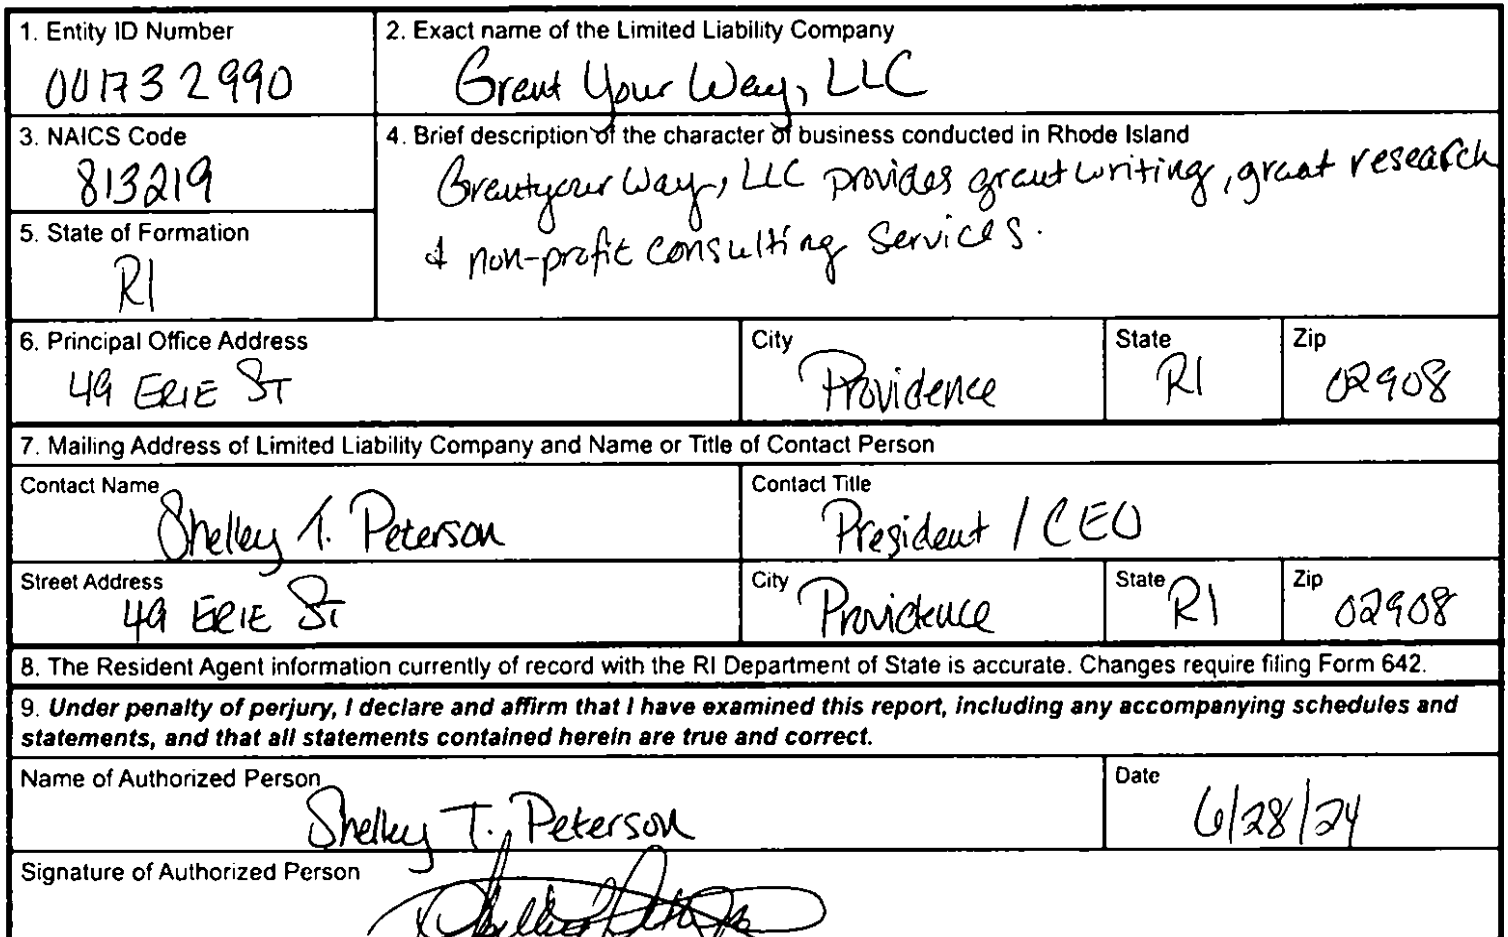 1. Entity ID Number
001732990
2. Exact name of the Limited Liability Company
Grant Your Way, LLC
3. NAICS Code
813219
4. Brief description of the character of business conducted in Rhode Island
Grantyour Way, LLC provides grant writing, grant research
& non-profit consulting services.
5. State of Formation
RI
6. Principal Office Address
49 ERIE ST
City
Providence
State
RI
Zip
02908
7. Mailing Address of Limited Liability Company and Name or Title of Contact Person
Contact Name
Shelley T. Peterson
Contact Title
President / CEO
Street Address
49 ERIE ST
City
Providence
State
RI
Zip
02908
8. The Resident Agent information currently of record with the RI Department of State is accurate. Changes require filing Form 642.
9. Under penalty of perjury, I declare and affirm that I have examined this report, including any accompanying schedules and
statements, and that all statements contained herein are true and correct.
Name of Authorized Person
Shelley T. Peterson
Date
6/28/24
Signature of Authorized Person